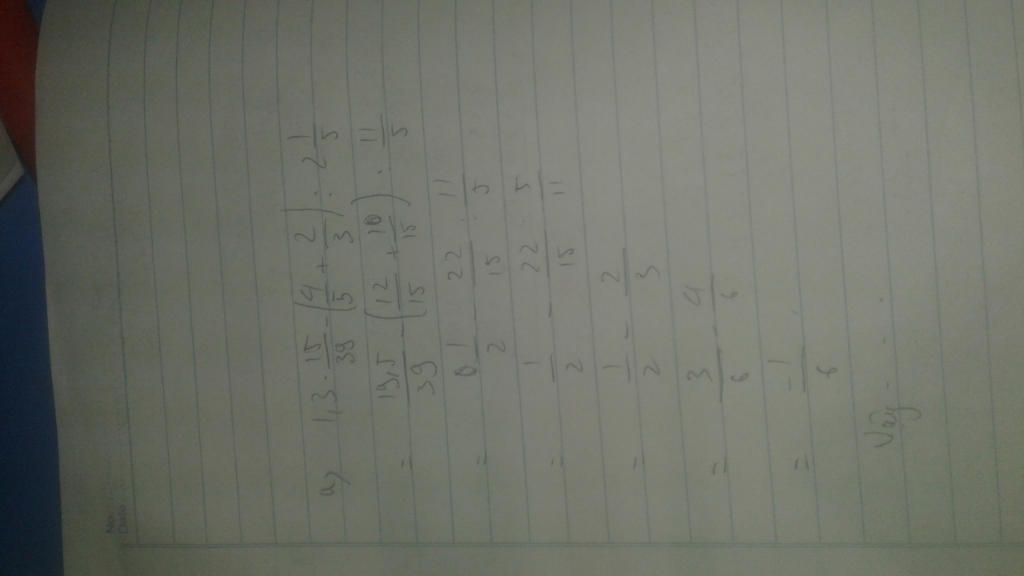 No.
Date
a) 1,3 . 15/39 - (4/5 + 2/3) : 2 1/5
= 19,5/39 - (12/15 + 10/15) : 11/5
= 1/2 - 22/15 : 11/5
= 1/2 - 22/15 . 5/11
= 1/2 - 2/3
= 3/6 - 4/6
= -1/6
Vậy . . .